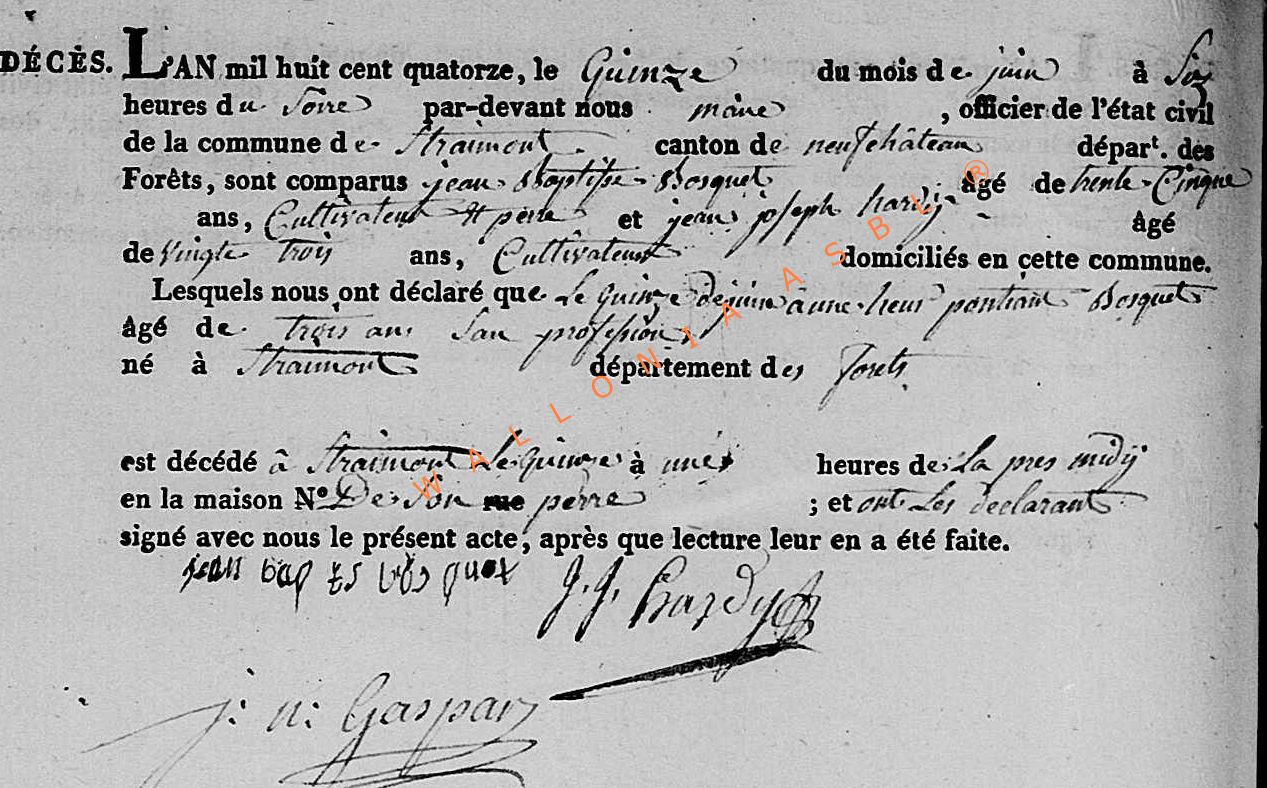 DÉCÈS. L'AN mil huit cent quatorze, le Quinze du mois de juin à Six
heures du Soire par-devant nous maire , officier de l'état civil
de la commune de Straimont canton de neufchâteau départ. des
Forêts, sont comparus jean Baptiste Bosquet âgé de trente Cinque
ans, Cultivateur et perre et jean joseph hardy âgé
de Vingte trois ans, Cultivateur domiciliés en cette commune.
Lesquels nous ont déclaré que Le quinze de juin à une heur pontiant Bosquet
âgé de trois ans San profession
né à Straimont département des forets
est décédé à Straimont Le quinze à une heures de La pres midÿ
en la maison No De Son rue perre ; et ont Les declarant
signé avec nous le présent acte, après que lecture leur en a été faite.
jean bap ts bosquet J. J. hardy
j: n: Gaspar
WALLONIA ASBL ®